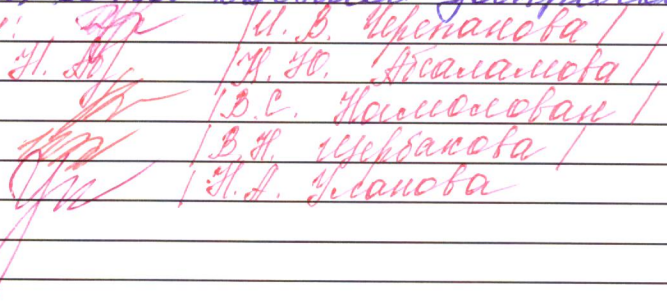 /И. В. Черепанова/
/Н. Ю. Абсаламова/
/В. С. Намолован/
/В. Н. Щербакова/
/Н. А. Уланова